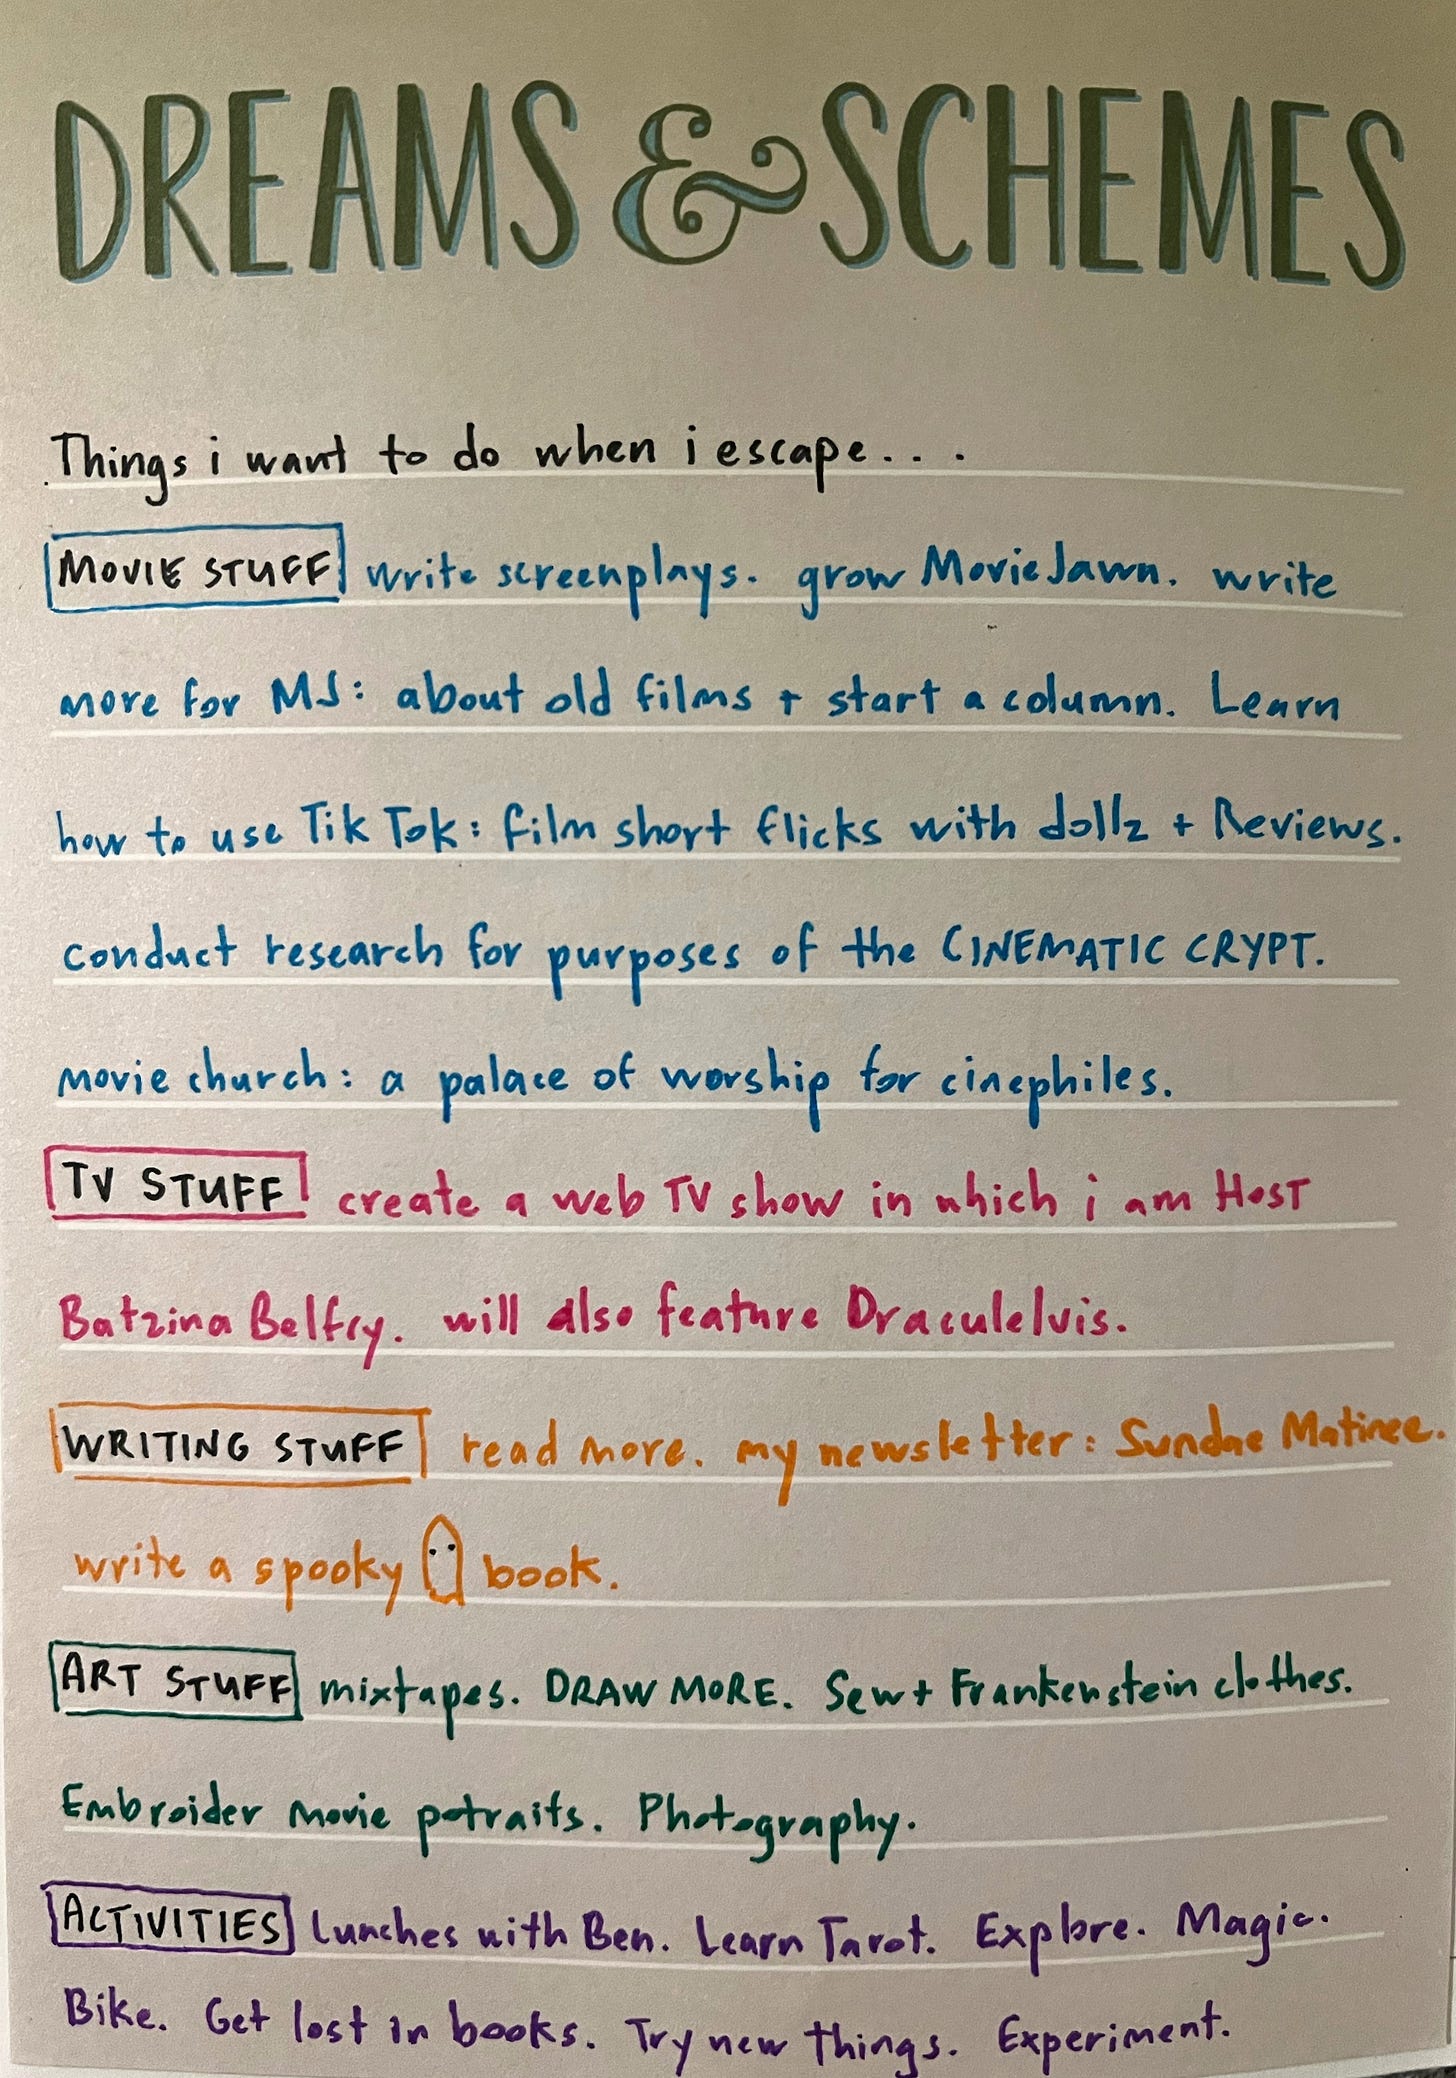 DREAMS & SCHEMES
Things i want to do when i escape...
MOVIE STUFF write screenplays. grow MovieJawn. write
more for MJ: about old films + start a column. Learn
how to use Tik Tok: film short flicks with dollz + Reviews.
conduct research for purposes of the CINEMATIC CRYPT.
movie church: a palace of worship for cinephiles.
TV STUFF create a web TV show in which i am HOST
Batzina Belfry. will also feature Draculelvis.
WRITING STUFF read more. my newsletter: Sundae Matinee.
write a spooky book.
ART STUFF mixtapes. DRAW MORE. Sew + Frankenstein clothes.
Embroider movie potraits. Photography.
ACTIVITIES Lunches with Ben. Learn Tarot. Explore. Magic.
Bike. Get lost in books. Try new things. Experiment.